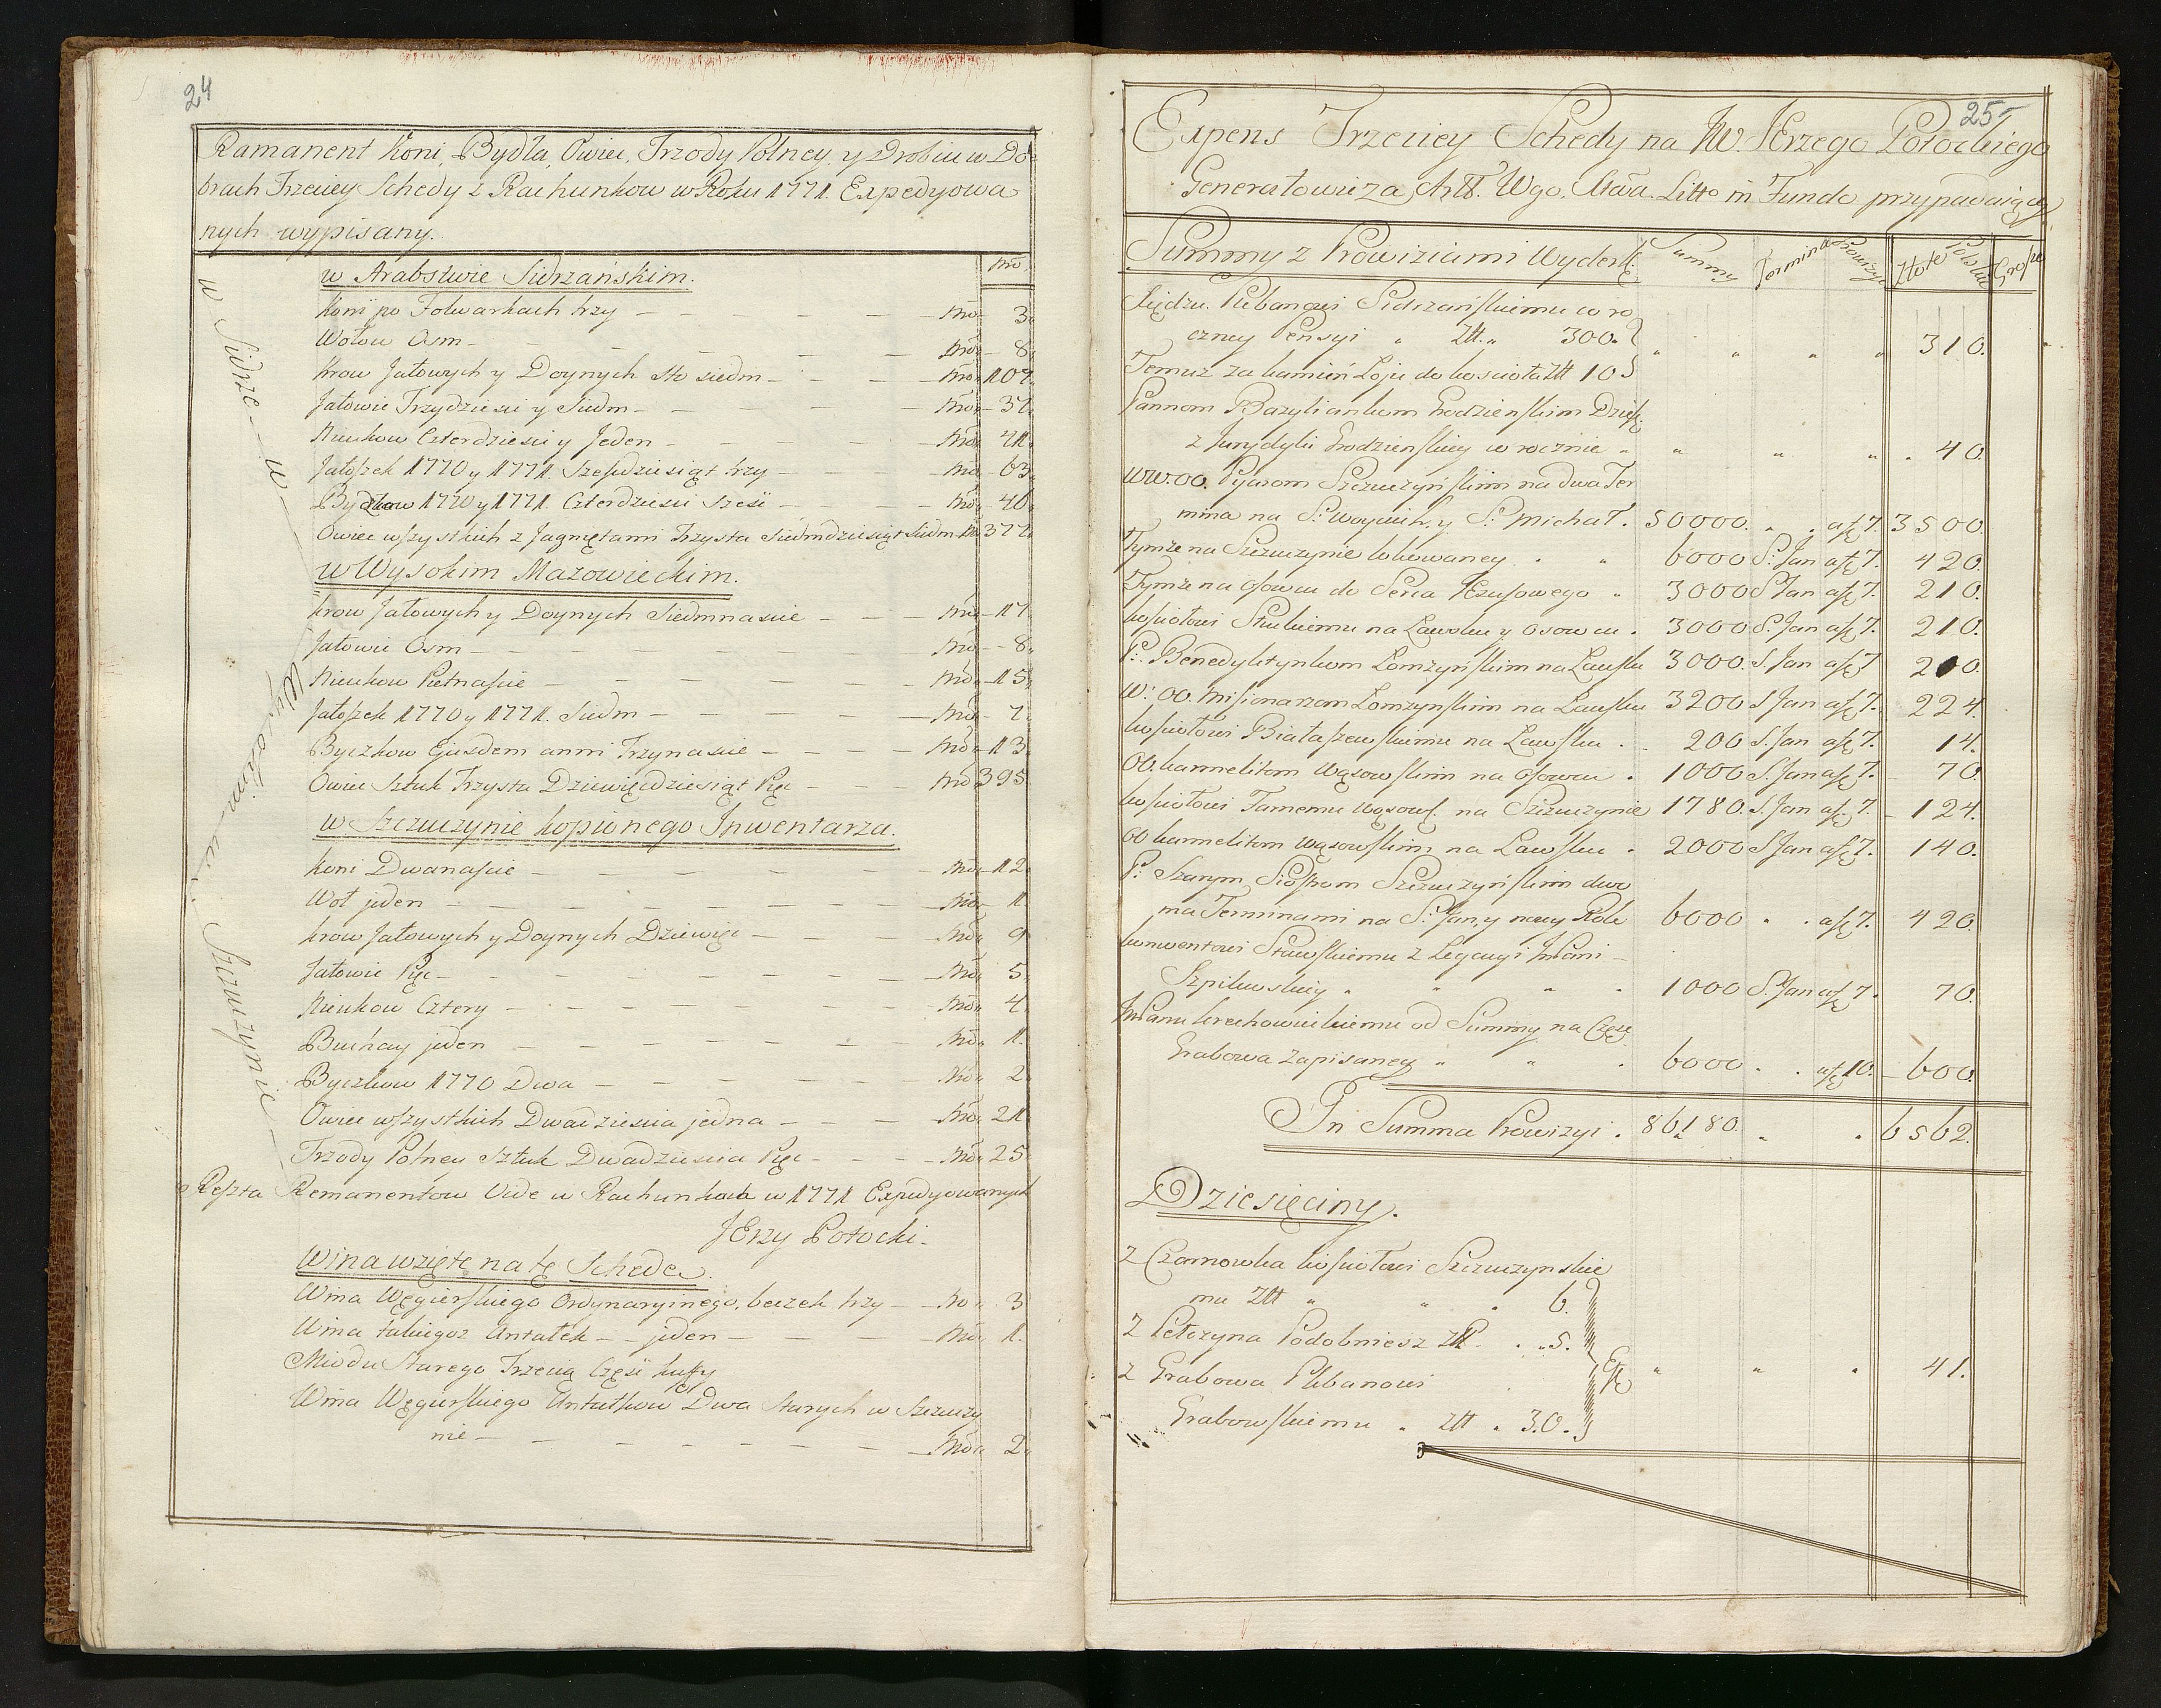 24
Ramanent Koni, Bydła, Owiec, Trzody Polney, y Drobiu w Do-
brach Trzeciey Schedy z Rachunkow w Roku 1771. Expedyowa
nych wypisany.
w Sidrze — w — Wysokim — w Szczuczynie
w Arabstwie Sidrzańskim. Nro
Koni po Folwarkach trzy — Nro 3.
Wołow Osm — Nro 8.
Krow Jałowych y Doynych Sto siedm — Nro 107.
Jałowic Trzydzieści y Siedm — Nro 37.
Nieukow Czterdzieści y Jeden — Nro 41.
Jałoszek 1770 y 1771. Sześćdziesiąt trzy — Nro 63.
Byczkow 1770 y 1771. Czterdzieści Sześć — Nro 46.
Owiec wszystkich z Jagniętami Trzysta Siedmdziesiąt siedm N 377.
w Wysokim Mazowieckim.
Krow Jałowych y Doynych Siedmnaście — Nro 17.
Jałowic Osm — Nro 8.
Nieukow Pietnaście — Nro 15.
Jałoszek 1770 y 1771. Siedm — Nro 7.
Byczkow Ejusdem anni Trzynaście — Nro 13.
Owiec Sztuk Trzysta Dziewięćdziesiąt Pięć — Nro 395.
w Szczuczynie kopionego Inwentarza.
Koni Dwanaście — Nro 12.
Woł jeden — Nro 1.
Krow Jałowych y Doynych Dziewięć — Nro 9.
Jałowic Pięć — Nro 5.
Nieukow Cztery — Nro 4.
Buchay jeden — Nro 1.
Byczkow 1770 Dwa — Nro 2.
Owiec wszystkich Dwadzieścia jedna — Nro 21.
Trzody Polney Sztuk Dwadzieścia Pięć — Nro 25.
Reszta Remanentow Vide w Rachunkach w 1771 Expedyowanych
JErzy Potocki.
Wina wzięte na tę Schedę.
Wina Węgierskiego Ordynaryinego, beczek trzy — No 3.
Wina takiegoż Antałek — jeden — Nro 1.
Miodu Starego Trzecią Część kuffy
Wina Węgierskiego Antałkow Dwa Starych w Szczuczy
nie — Nro 2.
25
Expens Trzeciey Schedy na JW. JErzego Potockiego
Generałowicza Artt. Wgo. Litto in Fundo przypadaiącey
Summy z Prowiziami Wyderk: Summy Termina Prowizyi Złote Polskie Grosze
Xiędzu Plebanowi Sidrzańskiemu co ro
czney Pensyi „ Złł. „ 300. „ „ „ „ 310.
Temuż za kamień Łoju do kościoła Złł 10
Pannom Bazyliankom Grodzieńskim Dzies:
z Jurydyki Grodzieńskiey co rocznie „ „ „ „ 40.
WW. OO. Pijarom Szczuczyńskim na dwa Ter
mina na S: Woyciech, y S: Michał. 50000. „ . a 7. 3500.
Tymże na Szczuczynie lokowaney . „ 6000 S: Jan a 7. 420.
Tymże na Osowcu do Serca JEzusowego „ 3000 S Jan a 7. 210.
Kościołowi Stuckiemu na Ławsku y Osowcu . 3000 S. Jan a 7. 210.
P: Benedyktynkom Łomżyńskim na Ławsku 3000. S. Jan a 7 210.
W: OO. Misionarzom Łomżyńskim na Ławsku 3200 S Jan a 7. 224.
Kościołowi Białaszewskiemu na Ławsku . 200 S. Jan a 7. 14.
OO. Karmelitom Wąsowskim na Osowcu . 1000 S. Jan a 7. 70.
Kościołowi Farnemu Wąsows: na Szczuczynie 1780. S Jan a 7. 124.
OO Karmelitom Wąsowskim na Ławsku . 2000 S Jan a 7. 140.
P: Szarym Siostrom Szczuczyńskim dwo
ma Terminami na S: Jan, y nowy Rok 6000 „ . a 7. 420.
Konwentowi Stawskiemu z Legacyi JmPani
Szpilewskiey „ „ „ „ 1000 S: Jan a 7. 70.
JmPanu Krechowieckiemu od Summy na Część
Grabowa zapisaney „ „ . 6000 . . a 10. 600.
In Summa Prowizyi . 86,180. „ . 6562.
Dziesięciny.
Z Czarnowka kościołowi Szczuczynskie
mu Złł „ „ „ 6.
Z Pełczyna Podobnież Złł . „ 5.
z Grabowa Plebanowi „ „ „ 41.
Grabowskiemu . Złł . 30.